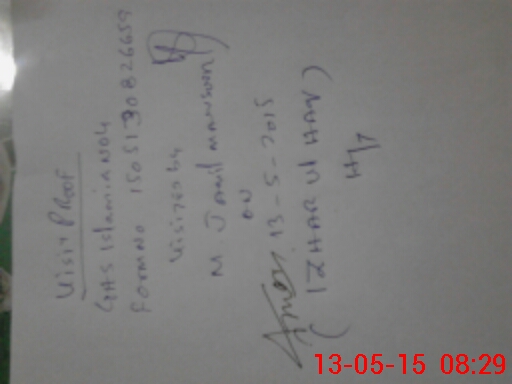 Visit Proof
GHS Islamia No4
Form No 1505130826659
Visited by
M Jamil Mansoori
on
13-5-2015
(IZHAR Ul HAQ)
H/T
13-05-15 08:29